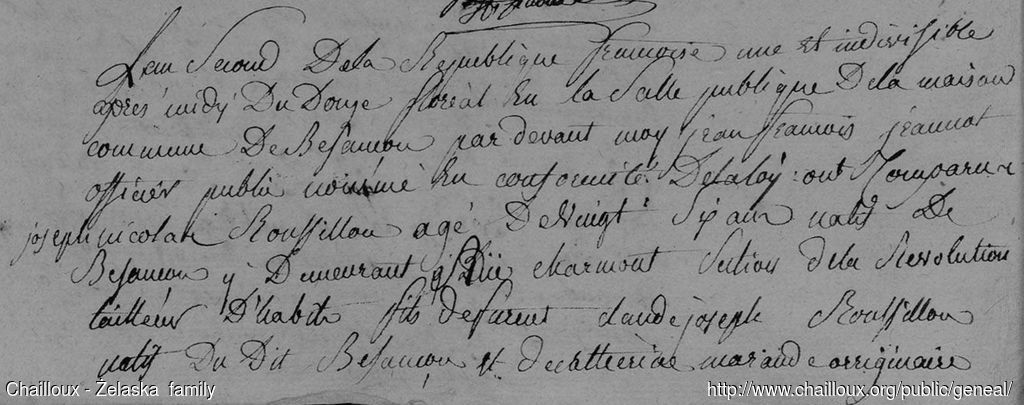 Lan Second De la Republique francoise une et indivisible
apres midy Du Douze floreal En la Salle publique De la maison
commune De Besancon par devant moy jean francois jeannot
officier public nommé En conformité De la loy : ont Comparu
joseph nicolas Roussillon agé De Vingt Six ans natif De
Besancon y Demeurant Rüe charmont Section de la Revolution
tailleur D'habit fils de furent claude joseph Roussillon
natif Du Dit Besançon et de catterine marande orriginaire
Chailloux - Żelaska family
http://www.chailloux.org/public/geneal/